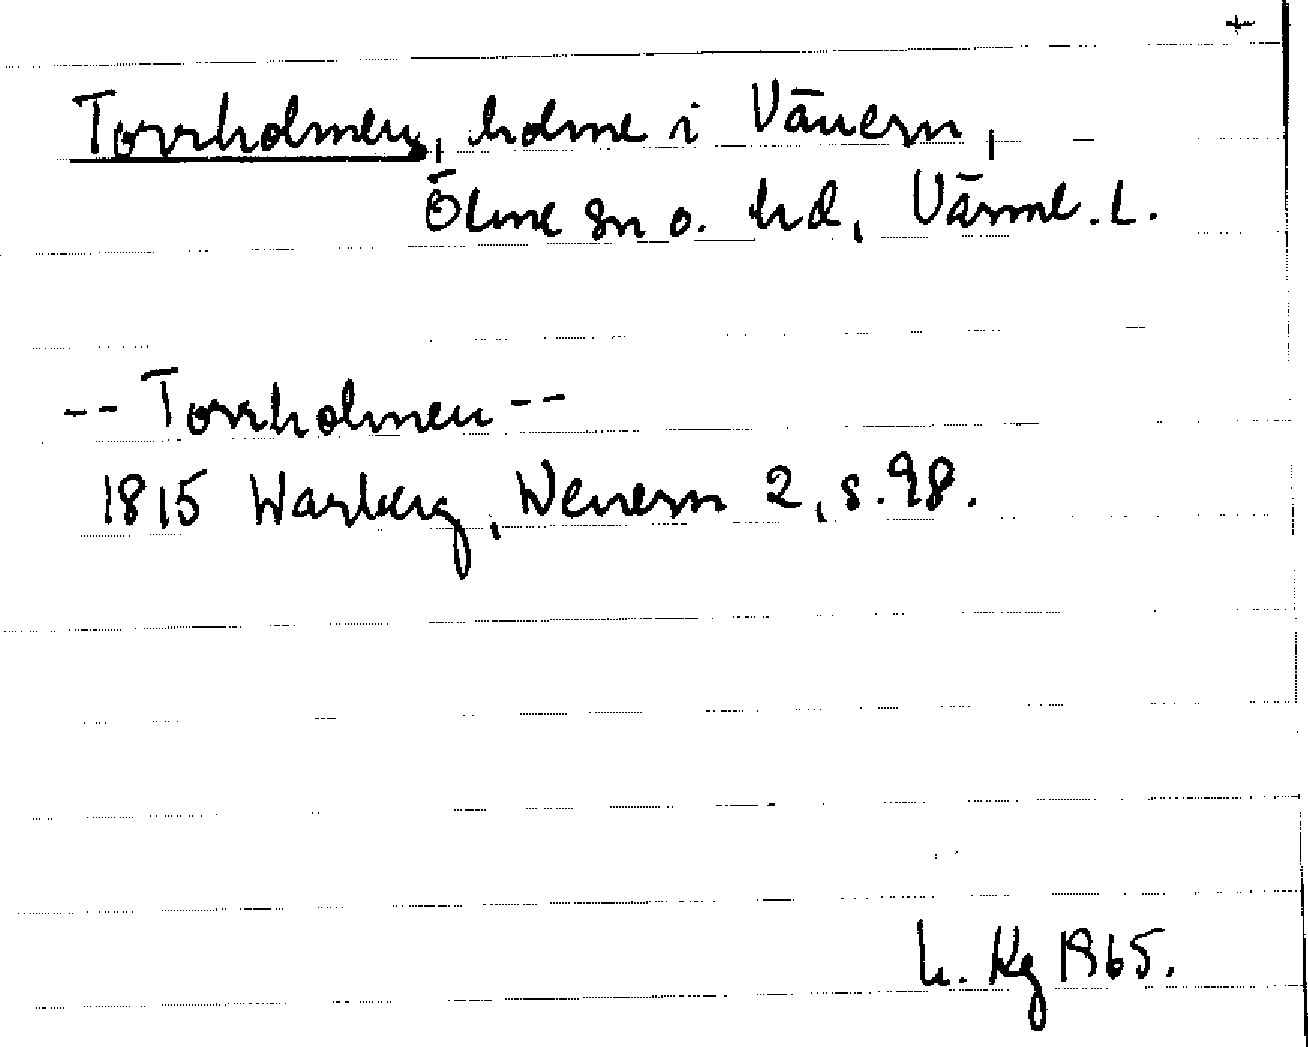 +
Torrholmen, holme i Vänern,
Ölme sn o. hd, Värml. L.
-- Torrholmen --
1815 Warberg, Wenern 2, s. 98.
L. Kg 1965.